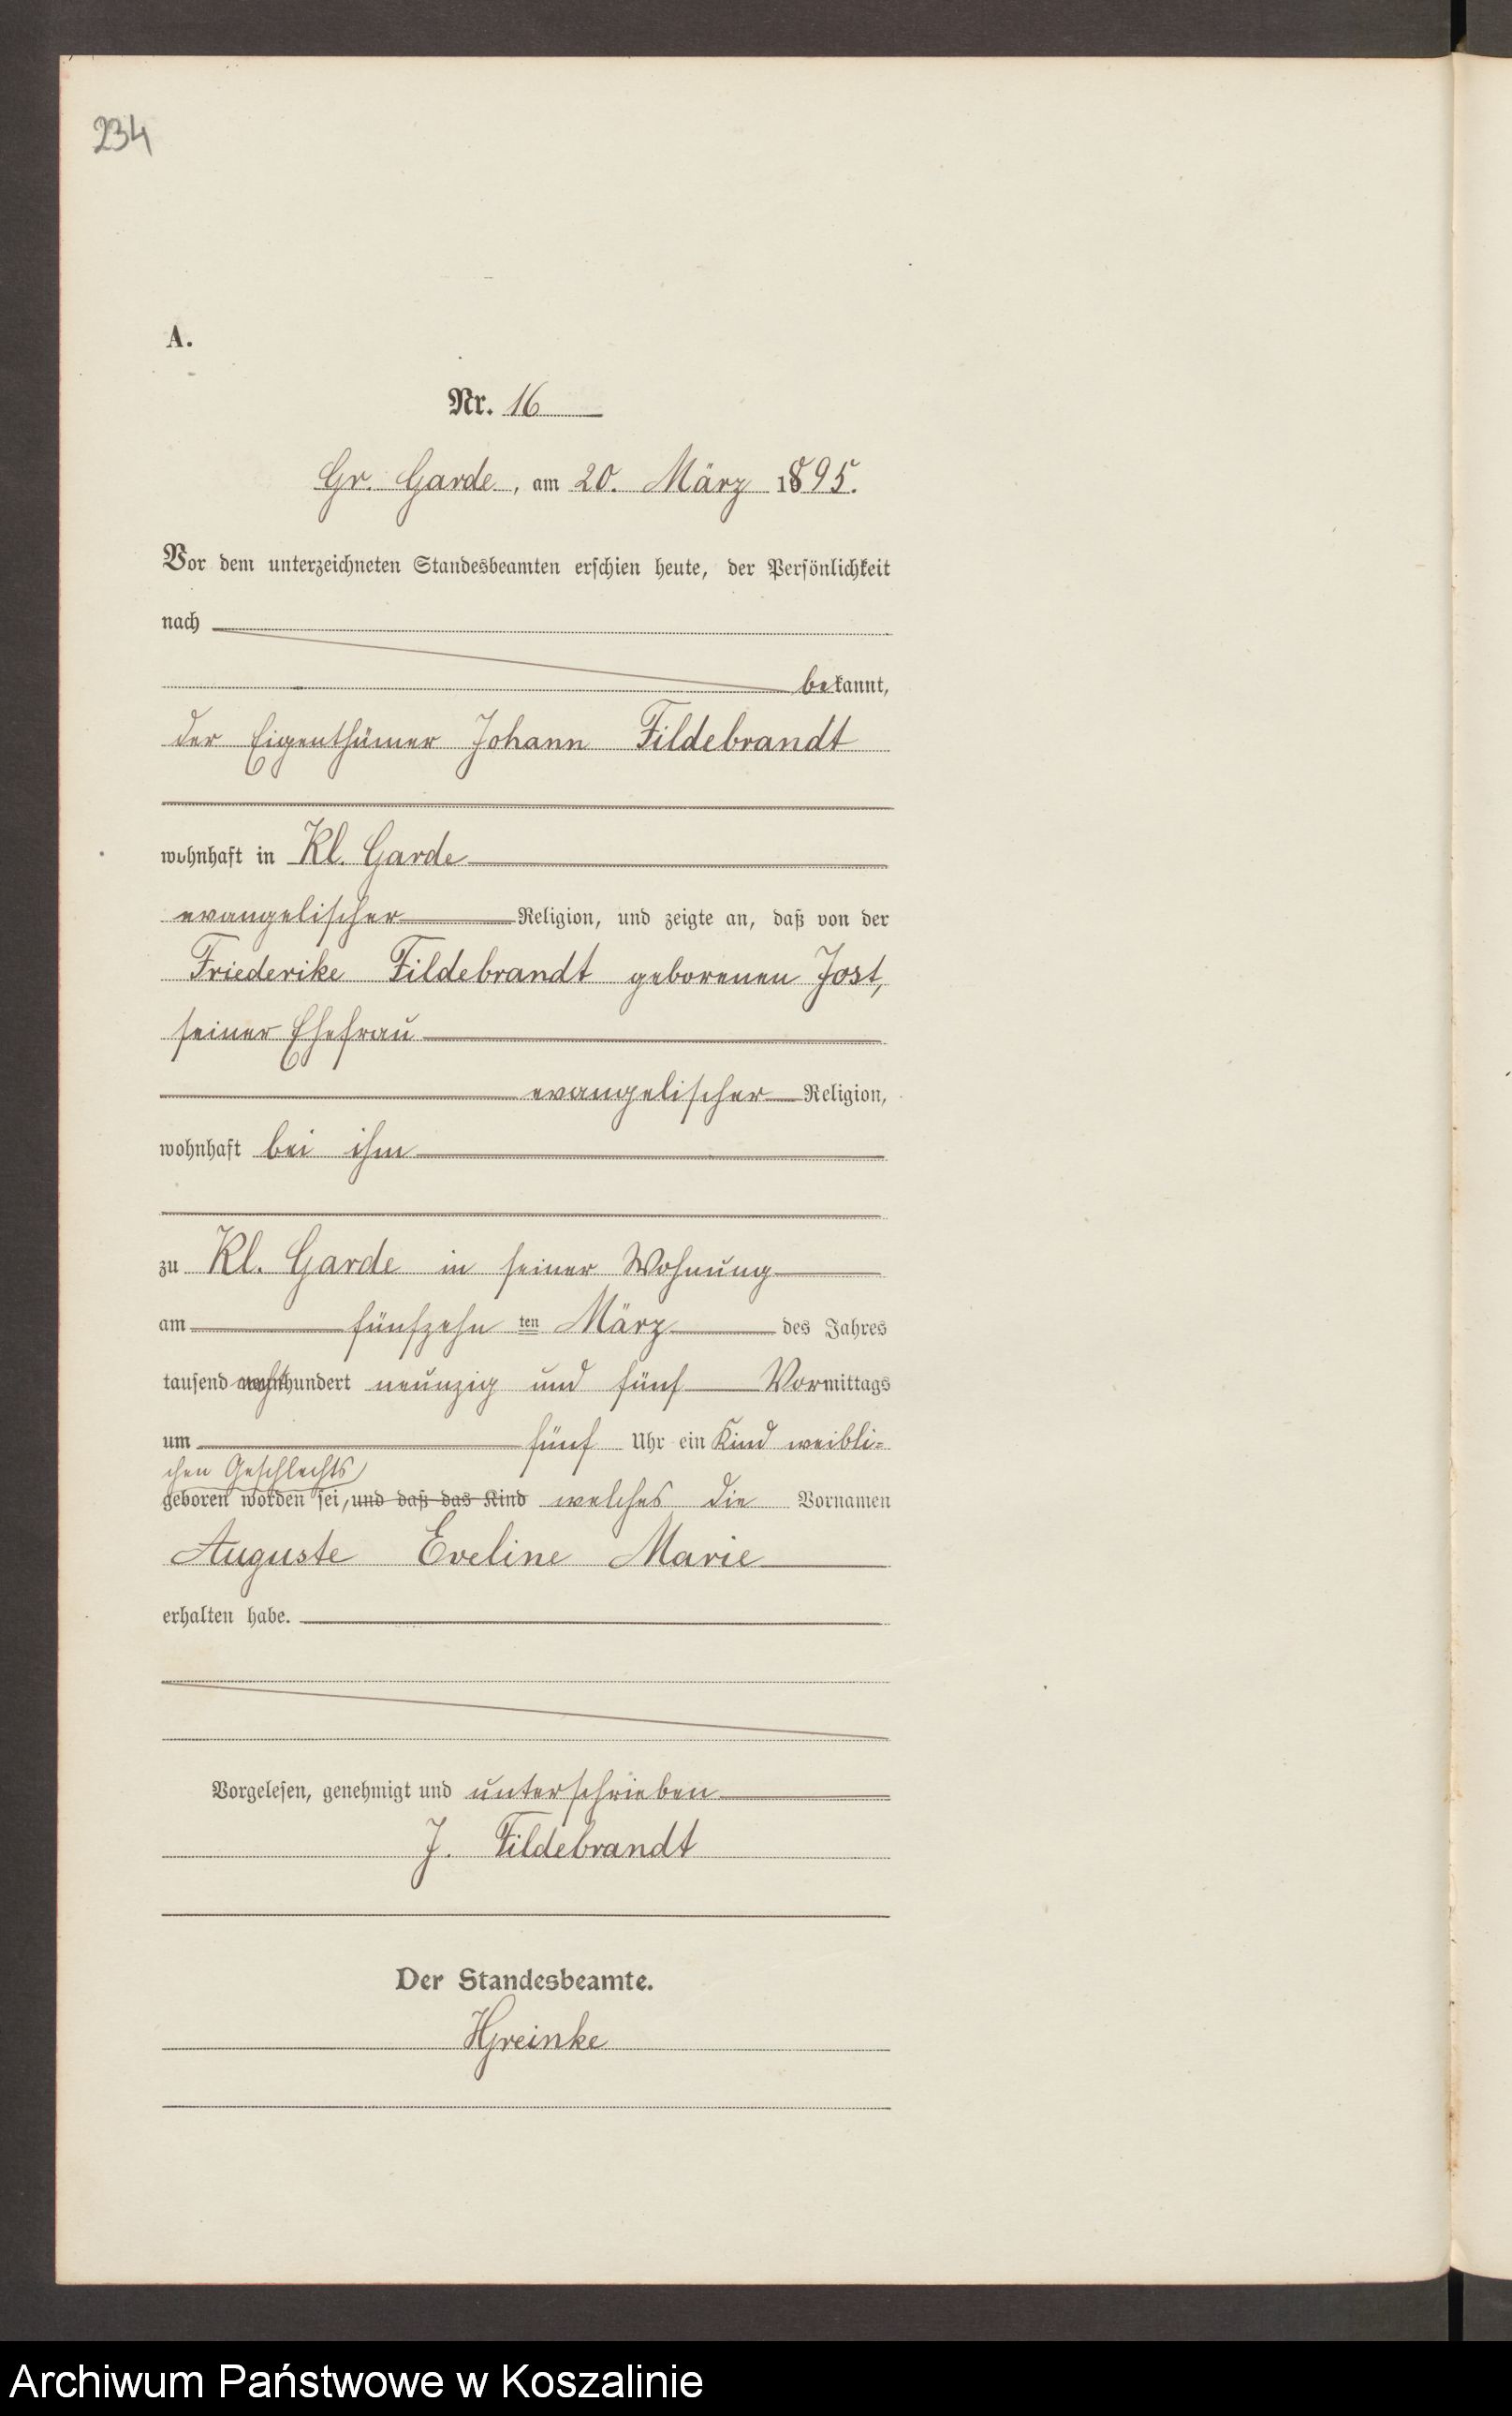 234
A.
Nr. 16
Gr. Garde, am 20. März 1895.
Vor dem unterzeichneten Standesbeamten erschien heute, der Persönlichkeit
nach
bekannt,
der Eigenthümer Johann Fildebrandt
wohnhaft in Kl. Garde
evangelischer Religion, und zeigte an, daß von der
Friederike Fildebrandt geborenen Jost,
seiner Ehefrau
evangelischer Religion,
wohnhaft bei ihm
zu Kl. Garde in seiner Wohnung
am fünfzehn ten März des Jahres
tausend achthundert neunzig und fünf Vormittags
um fünf Uhr ein Kind weibli=
chen Geschlechts
geboren worden sei, und daß das Kind welches die Vornamen
Auguste Eveline Marie
erhalten habe.
Vorgelesen, genehmigt und unterschrieben
J. Fildebrandt
Der Standesbeamte.
Archiwum Państwowe w Koszalinie